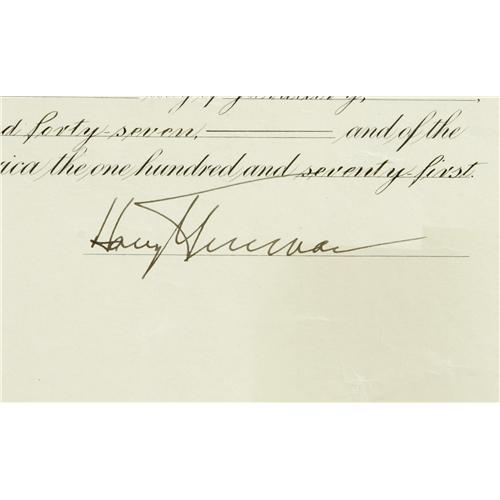 day of January,
d forty-seven, and of the
ica the one hundred and seventy-first.
Harry Truman